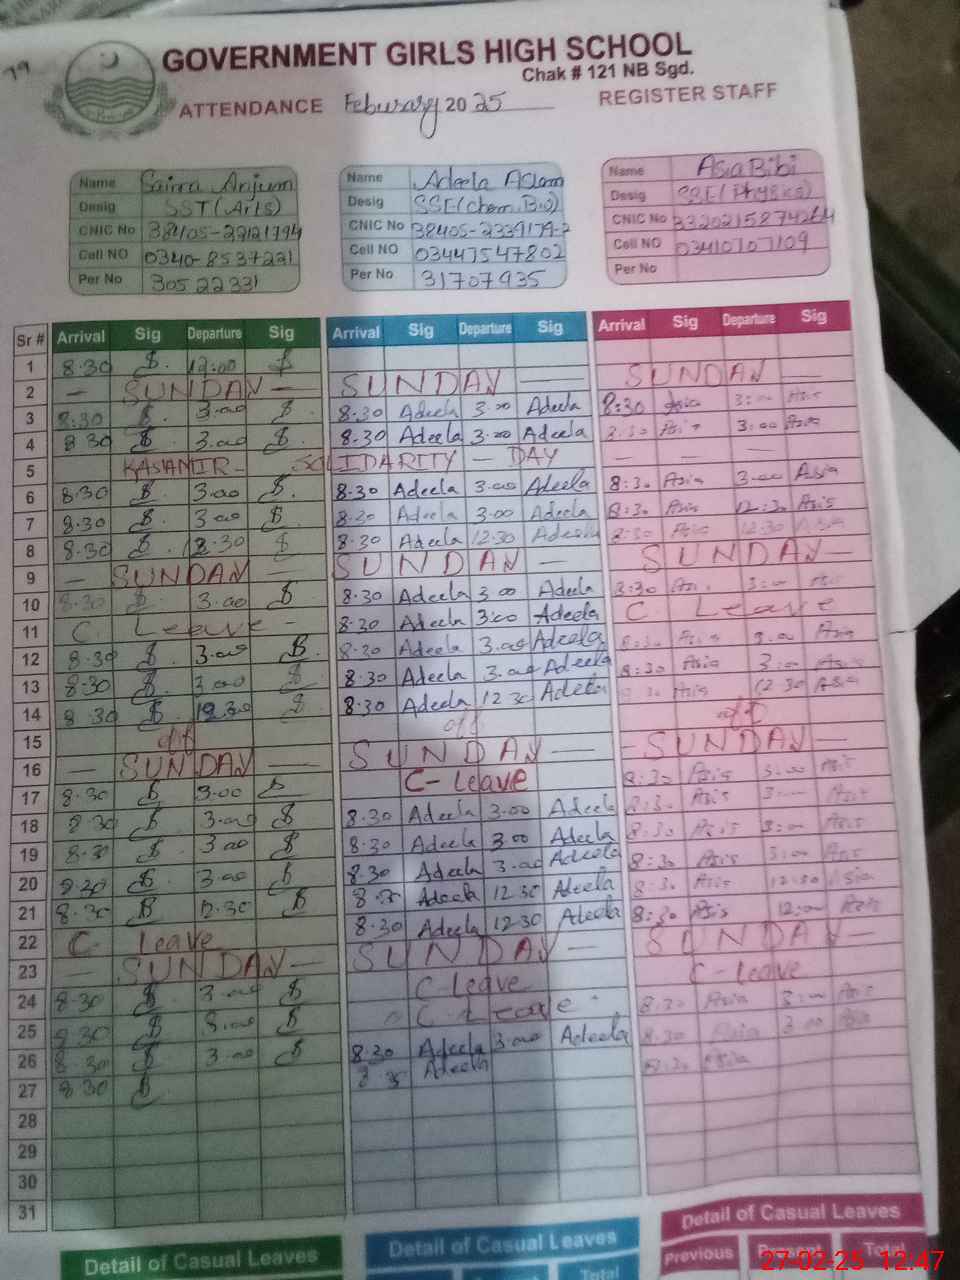 79
GOVERNMENT GIRLS HIGH SCHOOL
Chak # 121 NB Sgd.
ATTENDANCE Feburary 2025 REGISTER STAFF
Name Saima Anjum Name Adeela Aslam Name Asia Bibi
Desig SST (Arts) Desig SSE (Chem. Bio) Desig SSE (Physics)
CNIC No CNIC No 38405-2339179-2 CNIC No
Cell NO 0340-8537221 Cell NO 03447547802 Cell NO 03410707109
Per No 30522331 Per No 31707935 Per No
Sr # Arrival Sig Departure Sig Arrival Sig Departure Sig Arrival Sig Departure Sig
1 8.30 12:00 SUNDAY
2 — SUNDAY — SUNDAY —
3 8:30 3.00 8.30 Adeela 3.00 Adeela 8:30 Asia 3:00 Asia
4 8 30 3.00 8.30 Adeela 3.00 Adeela 8:30 Asia 3:00 Asia
5 KASHMIR - SOLIDARITY — DAY — — —
6 8.30 3.00 8.30 Adeela 3.00 Adeela 8:30 Asia 3:00 Asia
7 8.30 3.00 8.30 Adeela 3.00 Adeela 8:30 Asia 12:30 Asia
8 8.30 12.30 8.30 Adeela 12.30 Adeela 8:30 Asia 12:30 Asia
9 — SUNDAY — SUNDAY — SUNDAY
10 8.30 3.00 8.30 Adeela 3.00 Adeela 8:30 Asia 3:00 Asia
11 C. Leave - 8.30 Adeela 3:00 Adeela C. Leave
12 8.30 3.00 8.30 Adeela 3.00 Adeela 8:30 Asia 3:00 Asia
13 8.30 3.00 8.30 Adeela 3.00 Adeela 8:30 Asia 3:00 Asia
14 8.30 12.30 8.30 Adeela 12 30 Adeela 8:30 Asia 12:30 Asia
15 off off off
16 — SUNDAY — SUNDAY — - SUNDAY —
17 8.30 3.00 C- Leave 8:30 Asia 3:00 Asia
18 8.30 3.00 8.30 Adeela 3.00 Adeela 8:30 Asia 3:00 Asia
19 8.30 3 00 8.30 Adeela 3.00 Adeela 8:30 Asia 3:00 Asia
20 8.30 3.00 8.30 Adeela 3.00 Adeela 8:30 Asia 3:00 Asia
21 8.30 12.30 8.30 Adeela 12.30 Adeela 8:30 Asia 12:30 Asia
22 C- Leave 8.30 Adeela 12.30 Adeela 8:30 Asia 12:00 Asia
23 — SUNDAY — SUNDAY — SUNDAY —
24 8.30 3.00 C-Leave C-Leave
25 8.30 3.00 C-Leave 8:30 Asia 3:00 Asia
26 8.30 3.00 8.30 Adeela 3.00 Adeela 8:30 Asia 3:00 Asia
27 8 30 Adeela 8:30 Asia
28
29
30
31
Detail of Casual Leaves Detail of Casual Leaves Detail of Casual Leaves
Total Previous Present Total
27-02-25 12:47